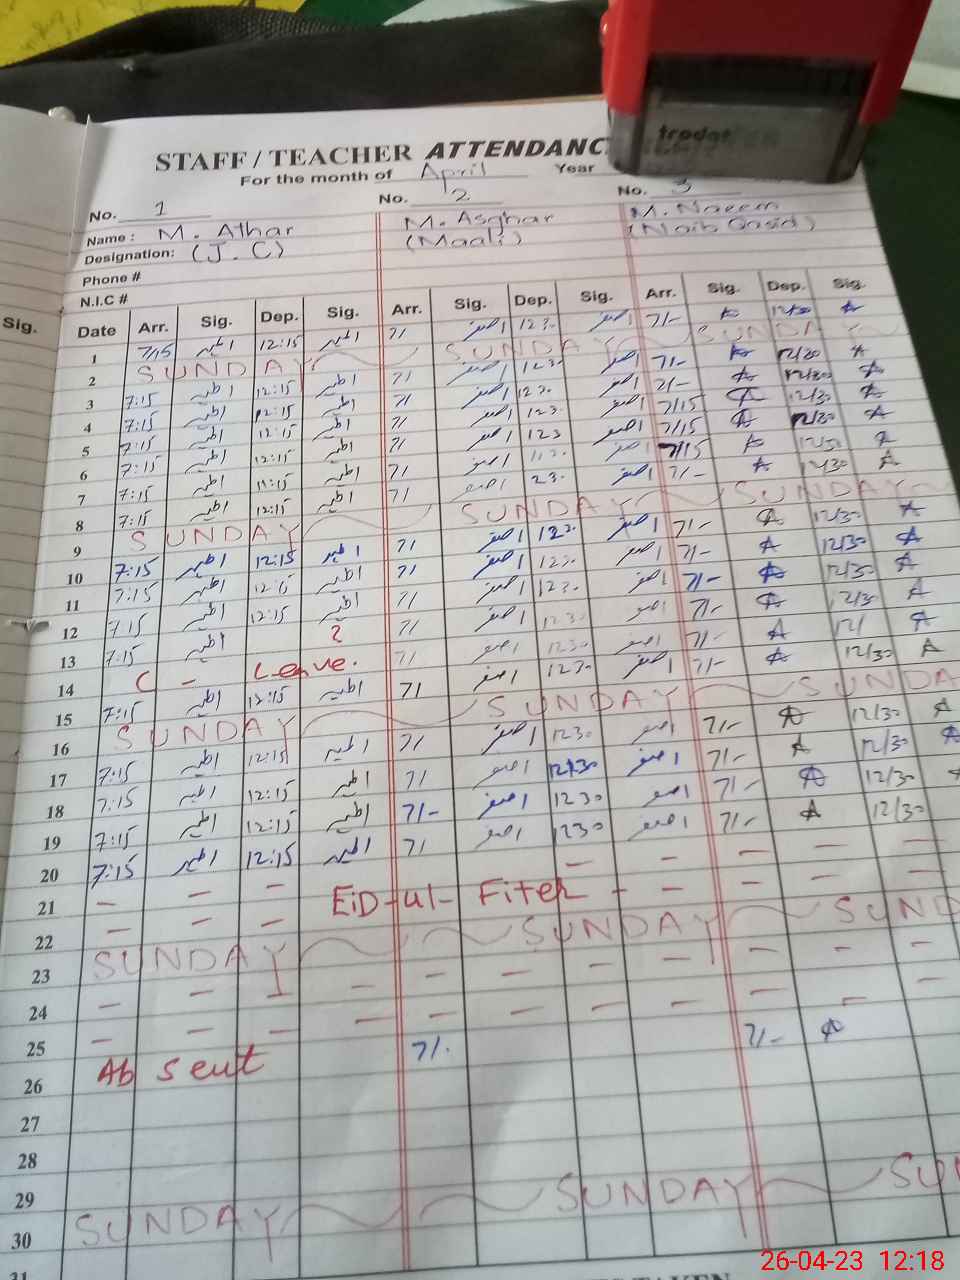 STAFF / TEACHER ATTENDANC
For the month of April Year
No. 1 No. 2 No. 3
Name : M. Athar M. Asghar M. Naeem
Designation: (J.C) (Maali) (Naib Qasid)
Phone #
N.I.C #
Sig. Date Arr. Sig. Dep. Sig. Arr. Sig. Dep. Sig. Arr. Sig. Dep. Sig.
1 7/15 اطہر 12:15 اطہر 7/ اصغر 1230 اصغر 7/- A 12/30 A
2 SUNDAY SUNDAY SUNDAY
3 7:15 اطہر 12:15 اطہر 7/ اصغر 1230 اصغر 7/- A 12/30 A
4 7:15 اطہر 12:15 اطہر 7/ اصغر 1230 اصغر 7/- A 12/30 A
5 7:15 اطہر 12:15 اطہر 7/ اصغر 123 اصغر 7/15 A 12/30 A
6 7:15 اطہر 12:15 اطہر 7/ اصغر 123 اصغر 7/15 A 12/30 A
7 7:15 اطہر 11:15 اطہر 7/ اصغر اصغر 7/15 A 12/30 A
8 7:15 اطہر 12:15 اطہر 7/ اصغر 230 اصغر 7/- A 12/30 A
9 SUNDAY SUNDAY SUNDAY
10 7:15 اطہر 12:15 اطہر 7/ اصغر 1230 اصغر 7/- A 12/30 A
11 7:15 اطہر 12:15 اطہر 7/ اصغر 1230 اصغر 7/- A 12/30 A
12 7:15 اطہر 12:15 اطہر 7/ اصغر 1230 اصغر 7/- A 12/30 A
13 7:15 اطہر 2 7/ اصغر 1230 اصغر 7/- A 12/3 A
14 C - Leave. 7/ اصغر 1230 اصغر 7/- A 12/ A
15 7:15 اطہر 12:15 اطہر 7/ اصغر 1230 اصغر 7/- A 12/30 A
16 SUNDAY SUNDAY SUNDA
17 7:15 اطہر 12:15 اطہر 7/ اصغر 1230 اصغر 7/- A 12/30 A
18 7:15 اطہر 12:15 اطہر 7/ اصغر 12/30 اصغر 7/- A 12/30 A
19 7:15 اطہر 12:15 اطہر 7/- اصغر 1230 اصغر 7/- A 12/30
20 7:15 اطہر 12:15 اطہر 7/ اصغر 1230 اصغر 7/- A 12/30
21 - - - EiD-ul-Fiter - - - - -
22 - - - - - -
23 SUNDAY SUNDAY SUND
24 - - - - - - - - - - -
25 - - - - - - - - - - -
26 Absent 7/. 7/- A
27
28
29
30 SUNDAY SUNDAY SU
31
trodat
26-04-23 12:18